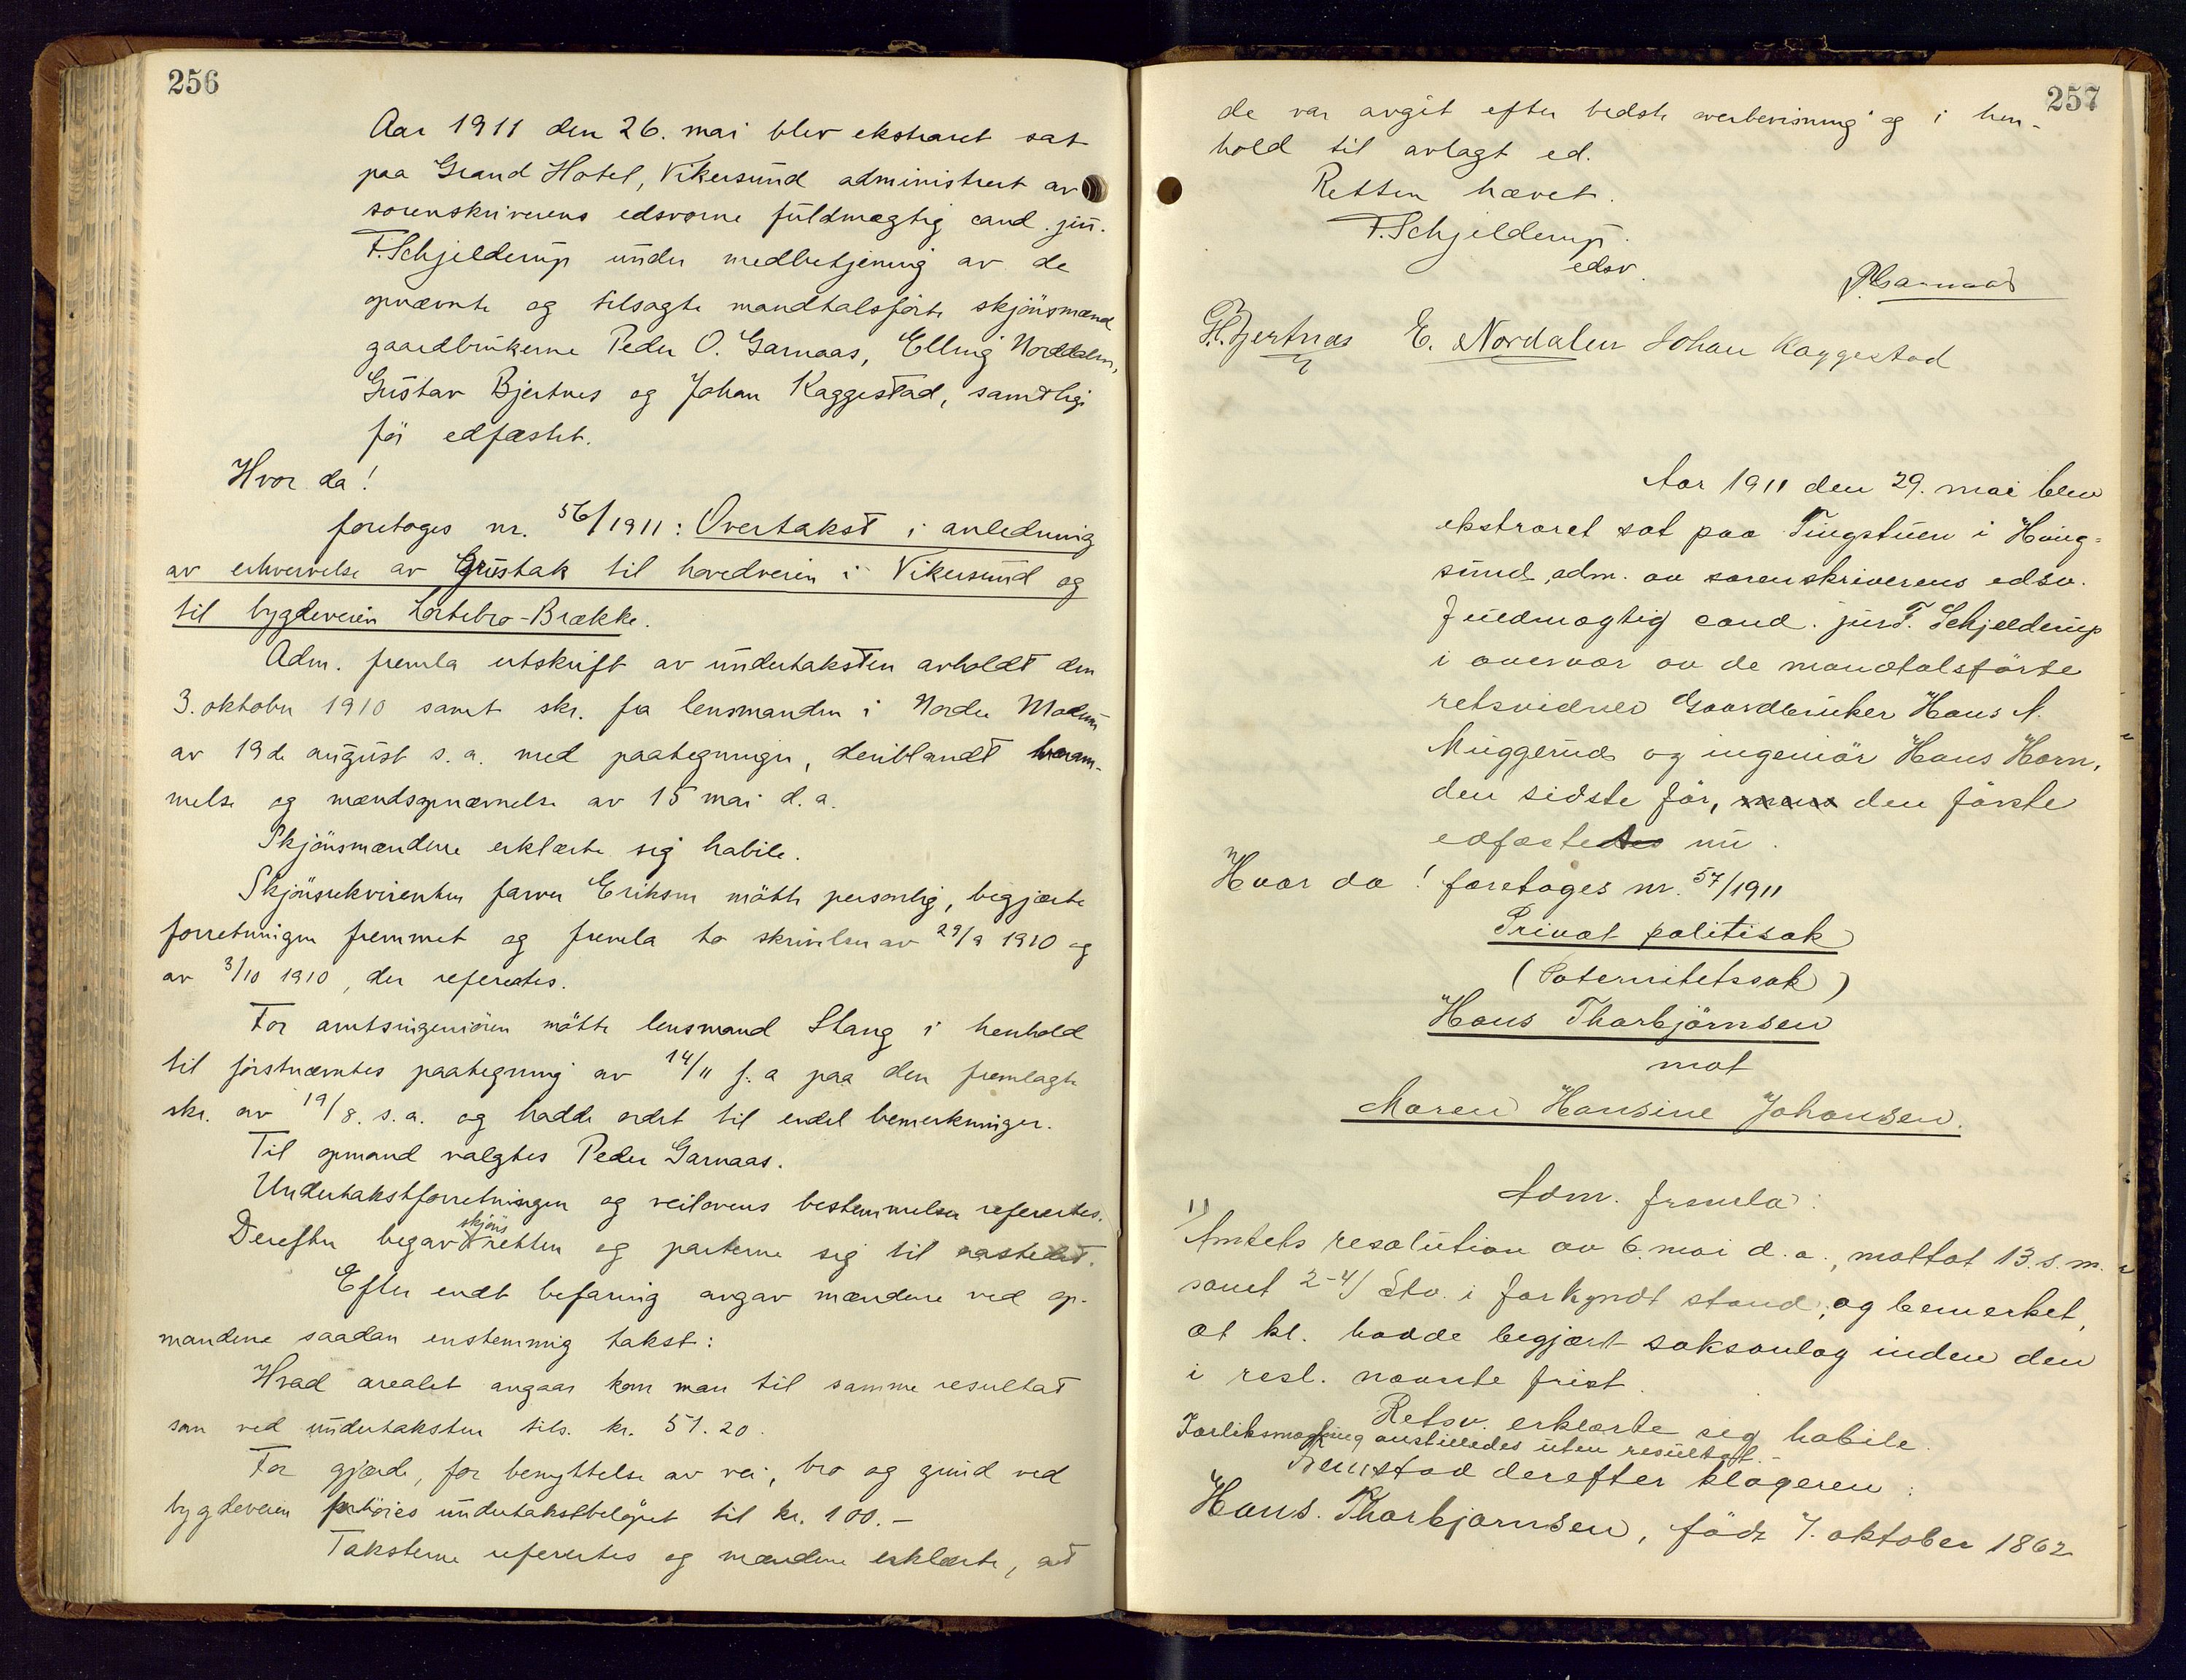 256
Aar 1911 den 26. mai blev ekstraret sat
paa Grand Hotel, Vikersund administrert av
sorenskriverens edsvorne fuldmægtig cand. jur.
F. Schjelderup under medbetjening av de
opnævnte og tilsagte mandtalsførte skjønsmænd
gaardbrukerne Peder O. Garnaas, Elling Nordalen,
Gustav Bjertnes og Johan Kaggestad, samtlige
før edfæstet.
Hvor da!
foretoges nr. 56/1911: Overtakst i anledning
av erhvervelse av Grustak til hovedveien i Vikersund og
til bygdeveien Lortebro-Brække.
Adm. fremla utskrift av undertaksten avholdt den
3. oktober 1910 samt skr. fra lensmanden i Nordre Modum
av 19de august s. a. med paategninger, deriblandt beram-
melse og mændsopnævnelse av 15 mai d. a.
Skjønsmændene erklærte sig habile.
Skjønsrekvirenten farver Eriksen møtte personlig, begjærte
forretningen fremmet og fremla to skrivelser av 29/9 1910 og
av 3/10 1910, der refertes.
For amtsingeniøren møtte lensmand Stang i henhold
til førstnævntes paategning av 14/11 f. a paa den fremlagte
skr. av 19/8. s. a. og hadde ordet til endel bemerkninger.
Til opmand valgtes Peder Garnaas.
Undertakstforretningen og veilovens bestemmelser refertes.
Derefter begav skjønsretten og parterne sig til aastedet.
Efter endt befaring avgav mændene ved op-
mandene saadan enstemmig takst:
Hvad arealet angaar kom man til samme resultat
som ved undertaksten tils. kr. 51.20.
For gjærde, for benyttelse av vei, bro og grind ved
bygdeveien forhøies undertakstbeløpet til kr. 100.-
Taksterne refertes og mændene erklærte, at
257
de var avgit efter bedste overbevisning og i hen-
hold til avlagt ed.
Retten hævet.
F. Schjelderup.
edsv.
P. Garnaas
G. Bjertnæs E. Nordalen Johan Kaggestad
Aar 1911 den 29. mai blev
ekstraret sat paa Tingstuen i Houg-
sund, adm. av sorenskriverens edsv.
Fuldmægtig cand. jur F. Schjelderup
i overvær av de mandtalsførte
retsvidner Gaardbruker Hans A.
Muggerud og ingeniør Hans Horn,
den sidste før, den første
edfæstedes nu.
Hvor da! foretoges nr. 57/1911
Privat politisak
(Paternitetssak)
Hans Thorbjørnsen
mot
Maren Hansine Johansen.
Adm. fremla:
1) Amtets resolution av 6. mai d. a., mottat 13. s. m.
samt 2-4/ Stv. i forkyndt stand, og bemerket,
at kl. hadde begjært saksanlæg inden den
i resl. nævnte frist.
Retsv. erklærte sig habile.
Forliksmægling anstilledes uten resultat.-
Fremstod derefter klageren:
Hans. Thorbjørnsen, født 7. oktober 1862